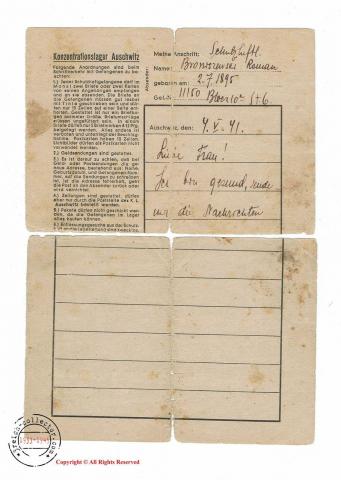 Konzentrationslager Auschwitz
Folgende Anordnungen sind beim
Schriftverkehr mit Gefangenen zu
beachten:
1.) Jeder Schutzhaftgefangene darf im
Monat zwei Briefe oder zwei Karten
von seinen Angehörigen empfangen
und an sie absenden. Die Briefe an
die Gefangenen müssen gut lesbar
mit Tinte geschrieben sein und dürf-
ten nur 15 Zeilen auf einer Seite ent-
halten. Gestattet ist nur ein Briefbogen
normaler Größe. Briefumschläge
müssen ungefüttert sein. In einem
Briefe dürfen nur 5 Briefmarken à 12 Pfg.
beigelegt werden. Alles andere ist
verboten und unterliegt der Beschlag-
nahme. Postkarten haben 10 Zeilen.
Lichtbilder dürfen als Postkarten nicht
verwendet werden.
2.) Geldsendungen sind gestattet.
3.) Es ist darauf zu achten, daß bei
Geld- oder Postsendungen die ge-
naue Adresse, bestehend aus: Name,
Geburtsdatum, und Gefangenen-Num-
mer, auf die Sendungen zu schreiben
ist. Ist die Adresse fehlerhaft, geht
die Post an den Absender zurück oder
wird vernichtet.
4.) Zeitungen sind gestattet, dürfen
aber nur durch die Poststelle des K. L.
Auschwitz bestellt werden.
5.) Pakete dürfen nicht geschickt wer-
den, da die Gefangenen im Lager
alles kaufen können.
6.) Entlassungsgesuche aus der Schutz-
Absender:
Meine Anschrift: Schutzhäftl.
Name: Roman
geboren am: 2.7.1895
Gef.-Nr. 11150
Auschwitz, den: 4.V.41.
Liebe Frau!
Ich bin gesund,
und die Nachrichten
reich-collector.com
1933-1945
Copyright © All Rights Reserved